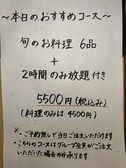 ～本日のおすすめコース～
旬のお料理 6品
+
2時間のみ放題付き
5500円(税込み)
(料理のみは 4500円)
※ご予約無しで当日ご注文いただけます
※こちらのコースはグループ全員がご注文
いただいた場合のみ承ります